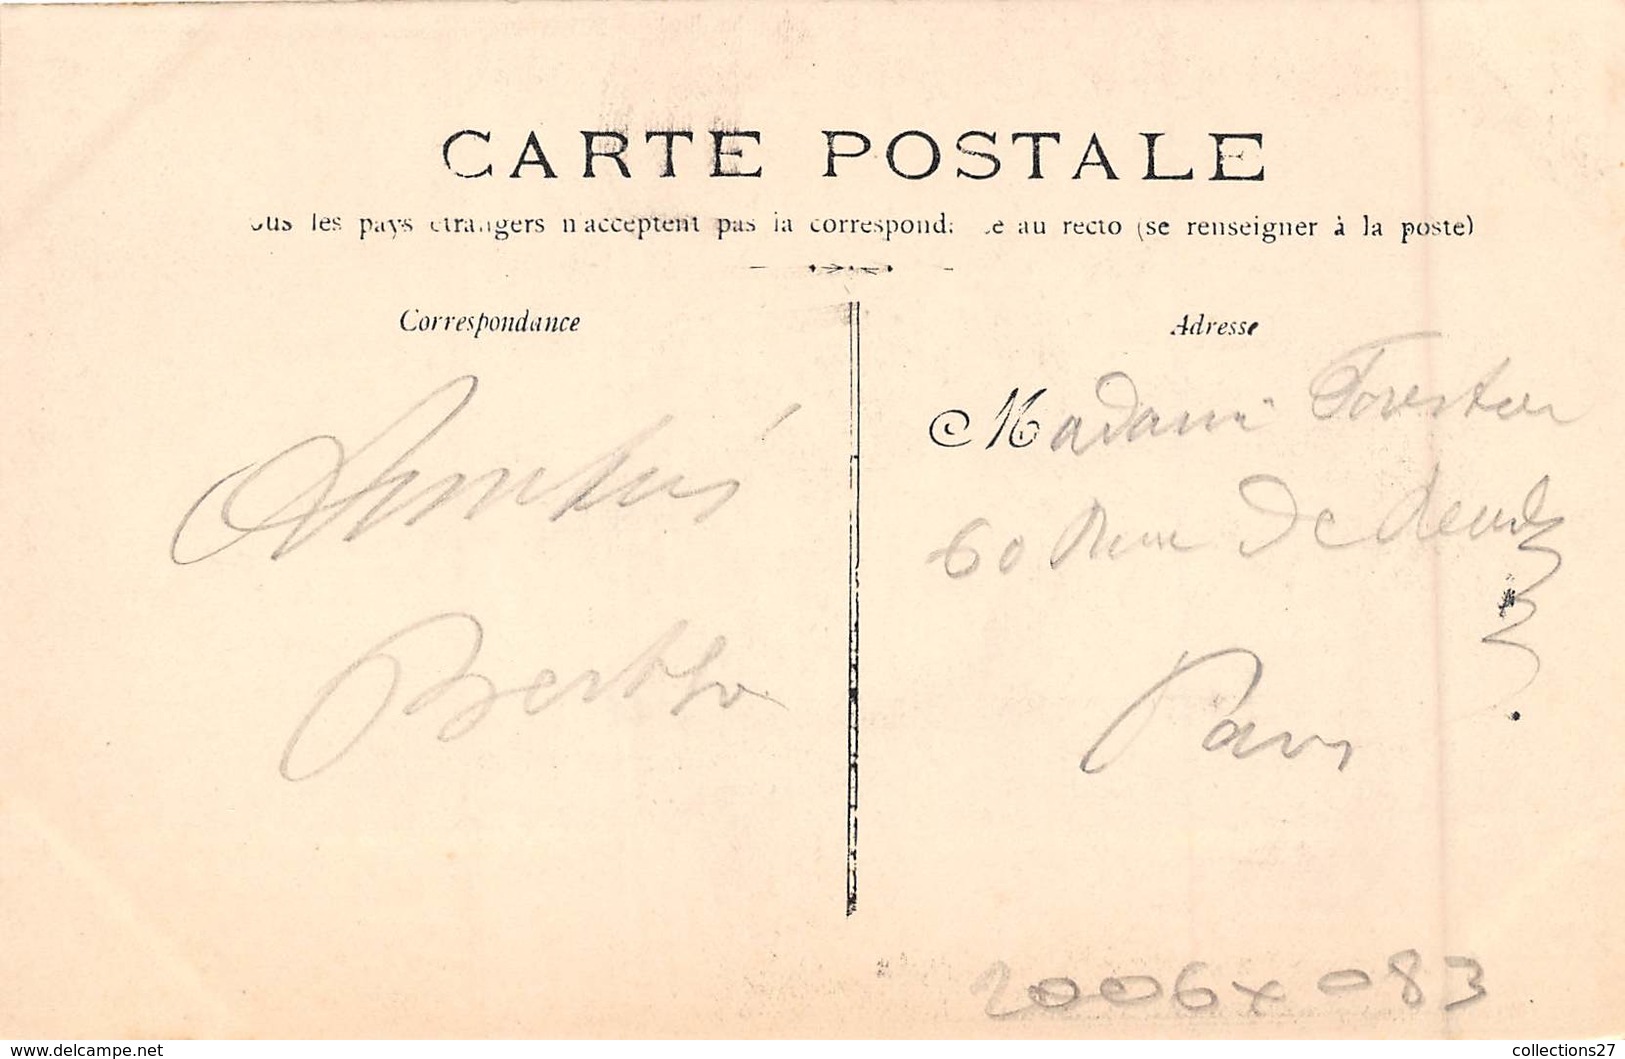 CARTE POSTALE
ous les pays etrangers n'acceptent pas la correspond ce au recto (se renseigner à la poste)
Correspondance
Adresse
Amitiés
Berthe
Madame
60 Rue De
Paris
2006x083
www.delcampe.net
collections27